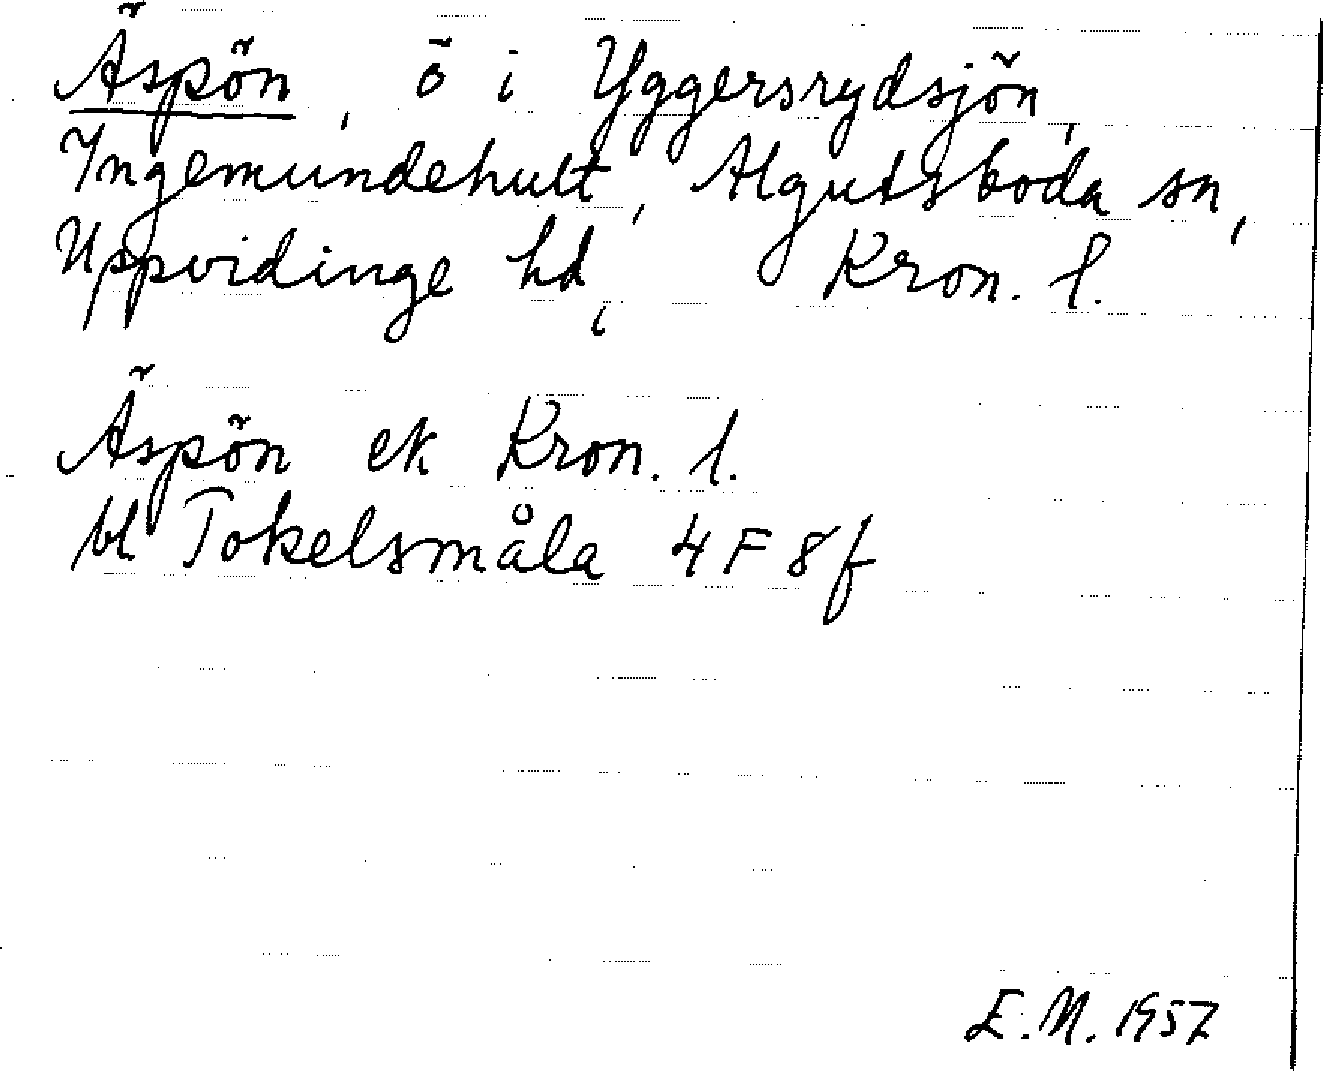 Äspön, ö i Yggersrydsjön,
Ingemundehult, Algutsboda sn,
Uppvidinge hd, Kron. l.
Äspön ek Kron. l.
bl Tokelsmåla 4F8f
E.N. 1957